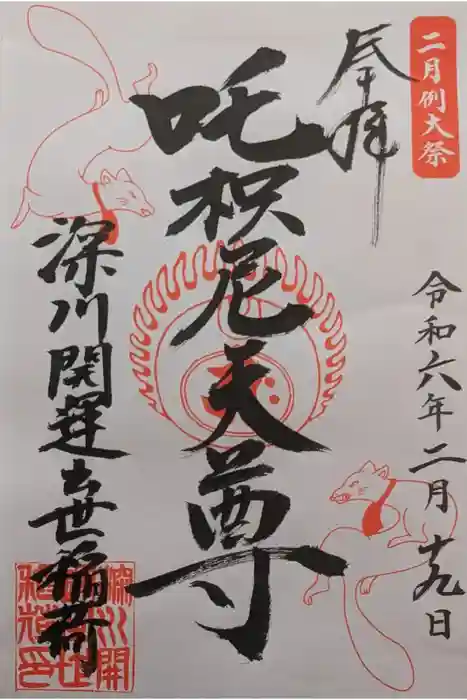 二月例大祭
奉拝
令和六年二月十九日
吒枳尼天尊
深川開運出世稲荷